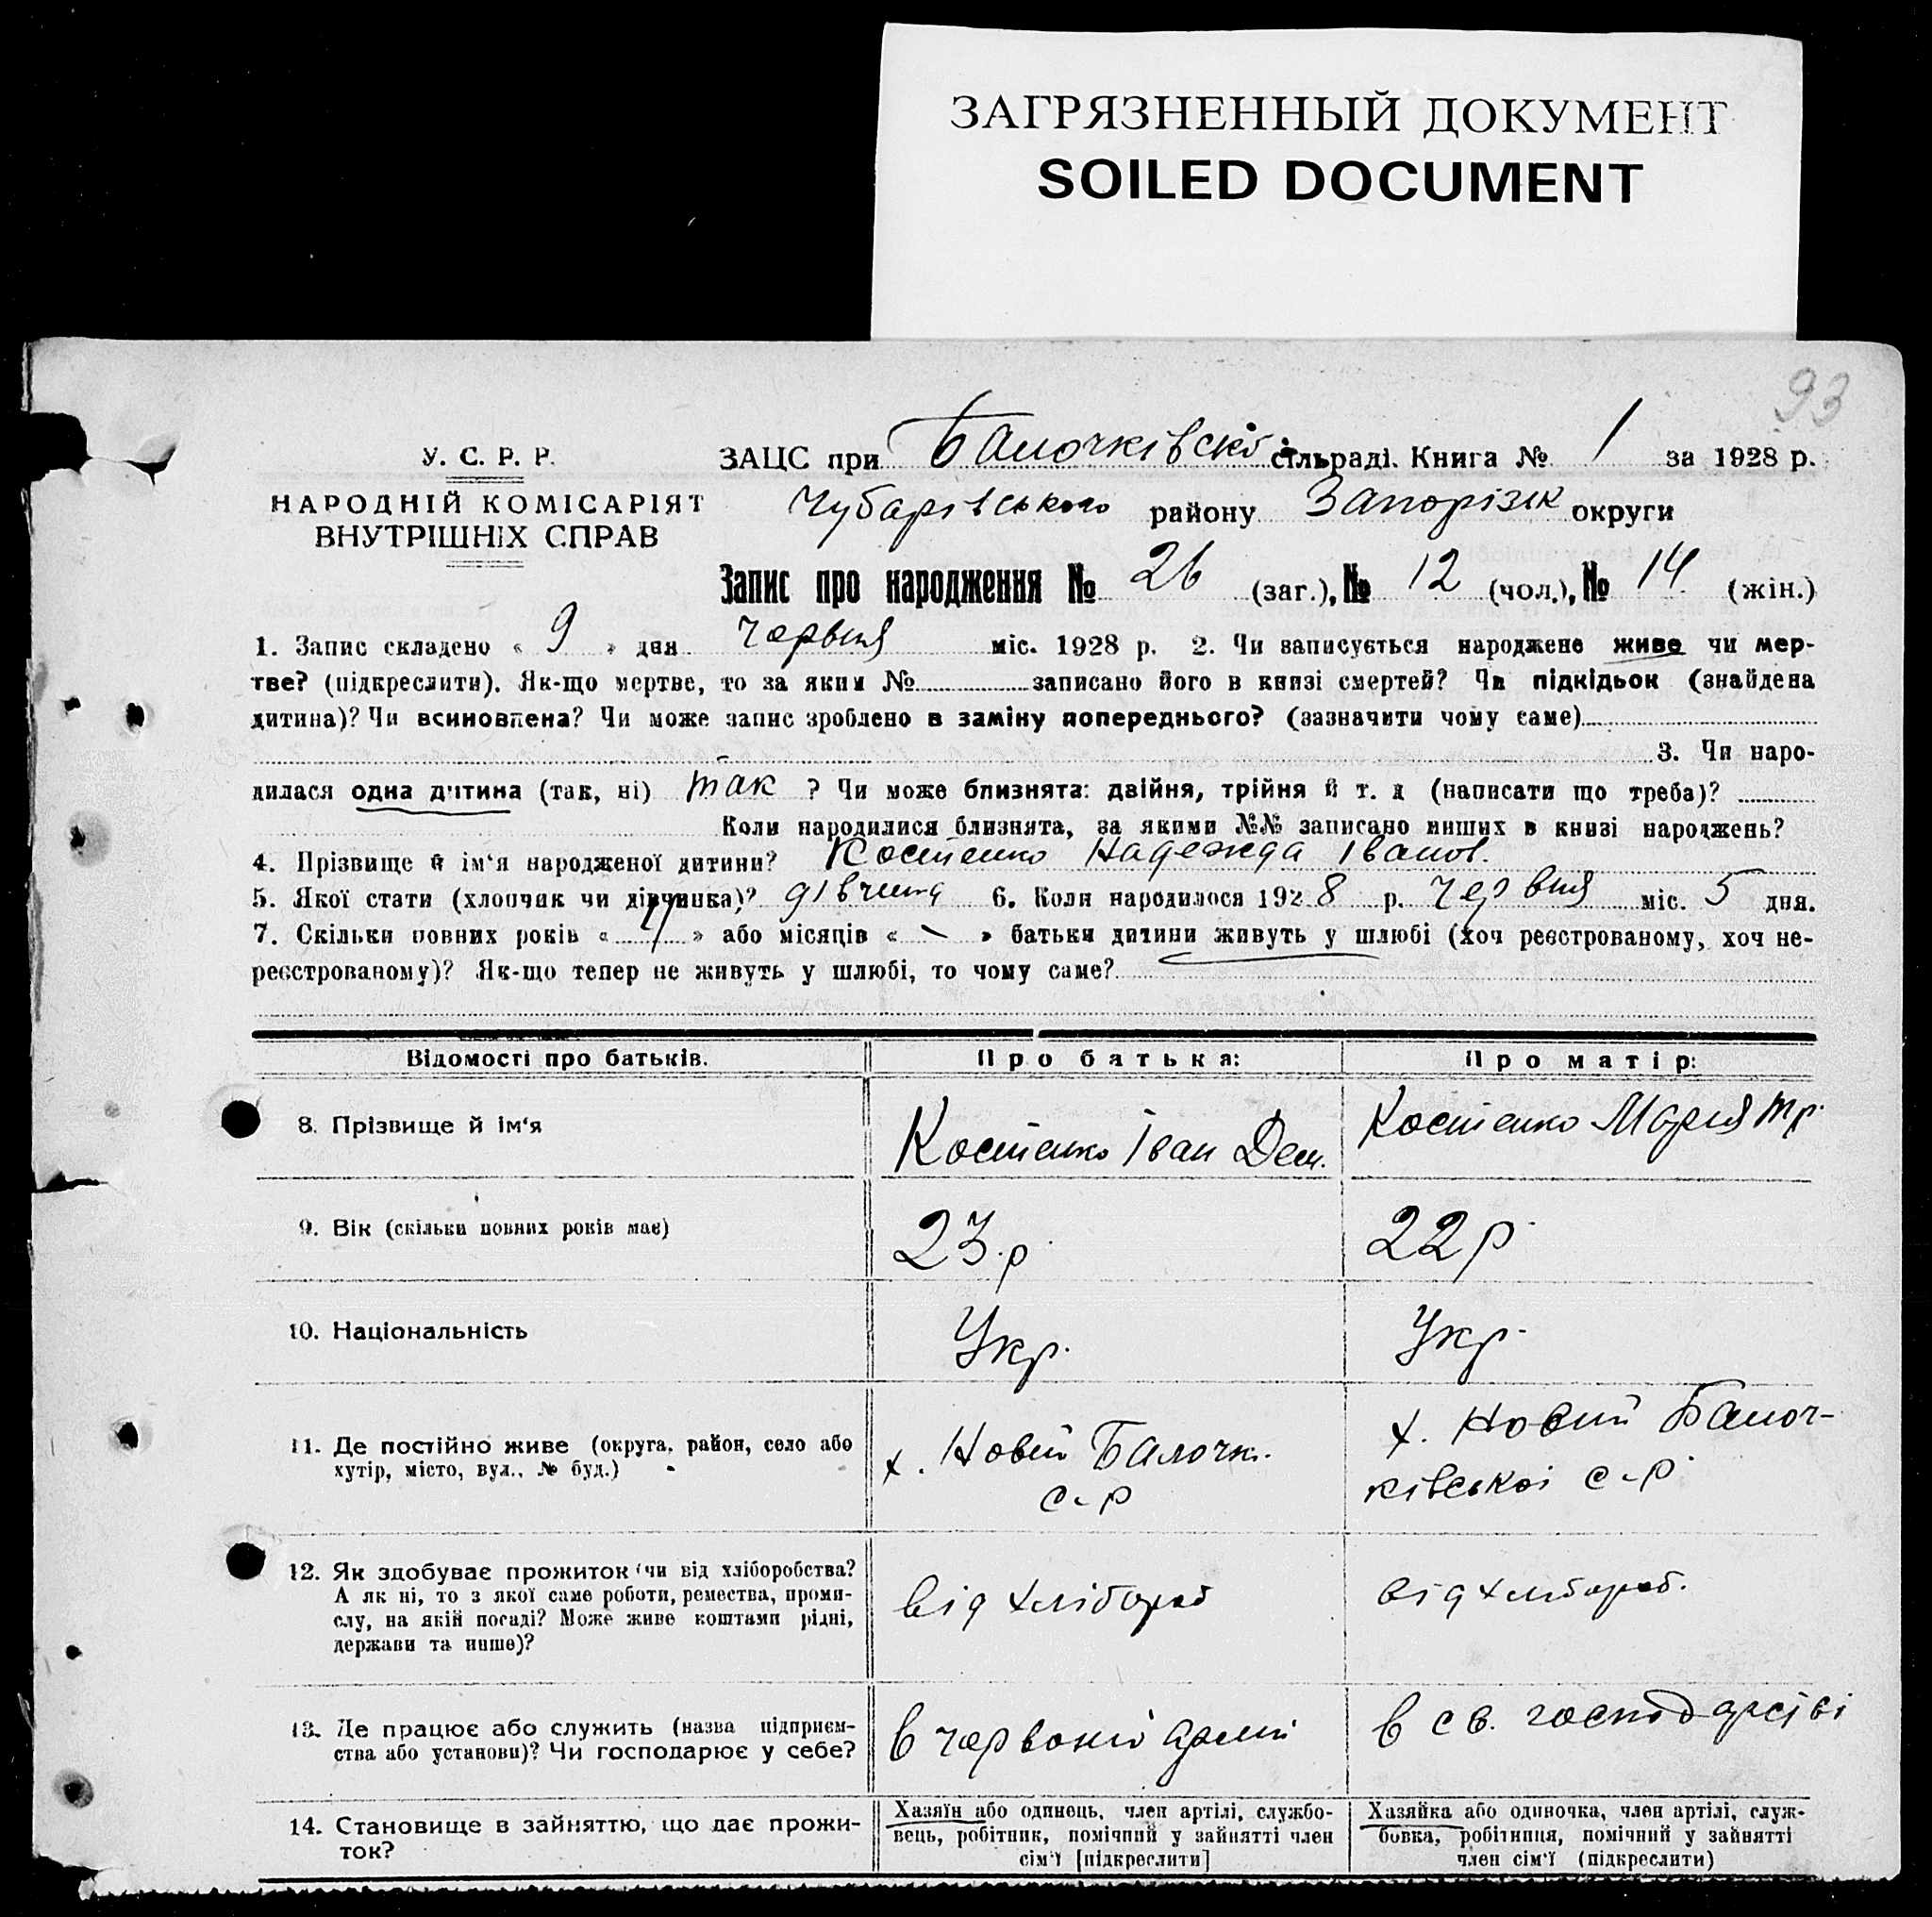 ЗАГРЯЗНЕННЫЙ ДОКУМЕНТ
SOILED DOCUMENT
93
У. С. Р. Р.
НАРОДНІЙ КОМІСАРІЯТ
ВНУТРІШНІХ СПРАВ
ЗАЦС при Балочківській сільраді. Книга № 1 за 1928 р.
Чубарівського району Запорізьк округи
Запис про народження № 26 (заг.), № 12 (чол.), № 14 (жін.)
1. Запис складено « 9 » дня червня міс. 1928 р. 2. Чи записується народжене живе чи мер-
тве? (підкреслити). Як-що мертве, то за яким № записано його в книзі смертей? Чи підкідьок (знайдена
дитина)? Чи всиновлена? Чи може запис зроблено в заміну попереднього? (зазначити чому саме)
3. Чи наро-
дилася одна дитина (так, ні) так ? Чи може близнята: двійня, трійня й т. д (написати що треба)?
Коли народилися близнята, за якими №№ записано инших в книзі народжень?
4. Прізвище й ім'я народженої дитини? Костенко Надежда Іванов.
5. Якої стати (хлопчик чи дівчинка)? дівчина 6. Коли народилося 1928 р. червня міс. 5 дня.
7. Скільки повних років « 4 » або місяців « – » батьки дитини живуть у шлюбі (хоч реєстрованому, хоч не-
реєстрованому)? Як-що тепер не живуть у шлюбі, то чому саме?
Відомості про батьків.
Про батька:
Про матір:
8. Прізвище й ім'я
Костенко Іван Дем.
Костенко Мария Тр.
9. Вік (скільки повних років має)
23 р.
22 р.
10. Національність
Укр.
Укр.
11. Де постійно живе (округа, район, село або
хутір, місто, вул., № буд.)
х. Новий Балочк.
с-р
х. Новий Балоч-
ківської с-р
12. Як здобуває прожиток (чи від хліборобства?
А як ні, то з якої саме роботи, ремества, проми-
слу, на якій посаді? Може живе коштами рідні,
держави та инше)?
від хлібороб
від хлібороб.
13. Де працює або служить (назва підприєм-
ства або установи)? Чи господарює у себе?
в червоній армії
в св. господарстві
14. Становище в зайняттю, що дає прожи-
ток?
Хазяїн або одинець, член артілі, службо-
вець, робітник, помічний у зайнятті член
сім'ї [підкреслити]
Хазяйка або одиночка, член артілі, служ-
бовка, робітниця, помічний у зайнятті
член сім'ї (підкреслити)